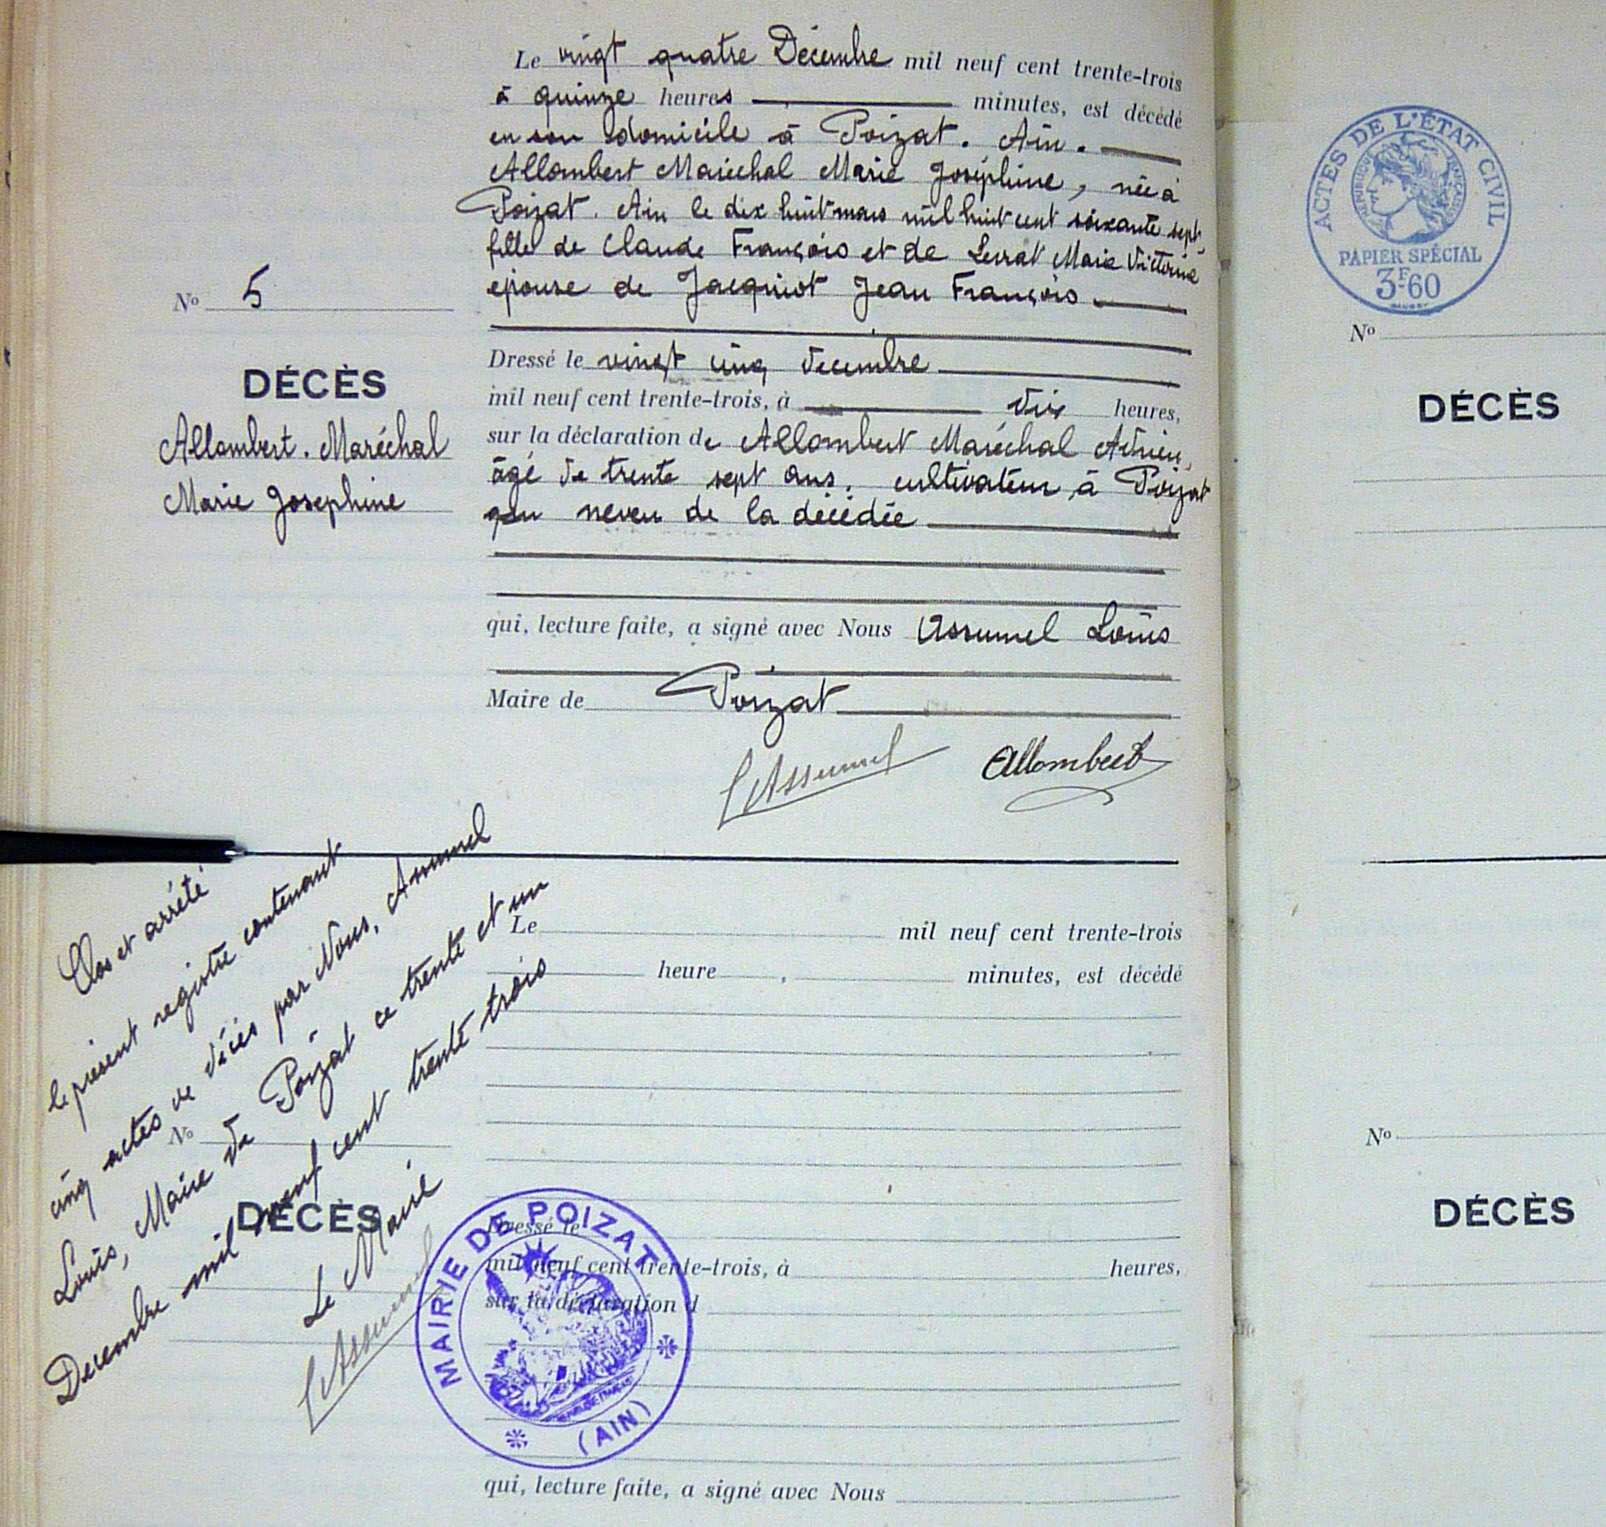 Le vingt quatre Décembre mil neuf cent trente-trois
à quinze heures minutes, est décédé
en son domicile à Poizat. Ain.
Allombert Maréchal Marie Joséphine, née à
Poizat. Ain le dix huit mars mil huit cent soixante sept,
fille de Claude François et de Levrat Marie Victorine
épouse de Jacquiot Jean François.
Nº 5
DÉCÈS
Allombert. Maréchal
Marie Josephine
Dressé le vingt cinq decembre
mil neuf cent trente-trois, à dix heures,
sur la déclaration de Allombert Maréchal Adrien,
âgé de trente sept ans, cultivateur à Poizat
neveu de la décédée
qui, lecture faite, a signé avec Nous Assumel Louis
Maire de Poizat
L Assumel
Allombert
Clos et arrêté
le présent registre contenant
cinq actes de décès par Nous, Assumel
Louis, Maire de Poizat ce trente et un
Decembre mil neuf cent trente trois
Le Maire
L Assumel
Nº
DÉCÈS
Le mil neuf cent trente-trois
heure , minutes, est décédé
Dressé le
mil neuf cent trente-trois, à heures,
sur la déclaration d
qui, lecture faite, a signé avec Nous
MAIRIE DE POIZAT
(AIN)
ACTES DE L'ÉTAT CIVIL
PAPIER SPÉCIAL
3F.60
Nº
DÉCÈS
Nº
DÉCÈS